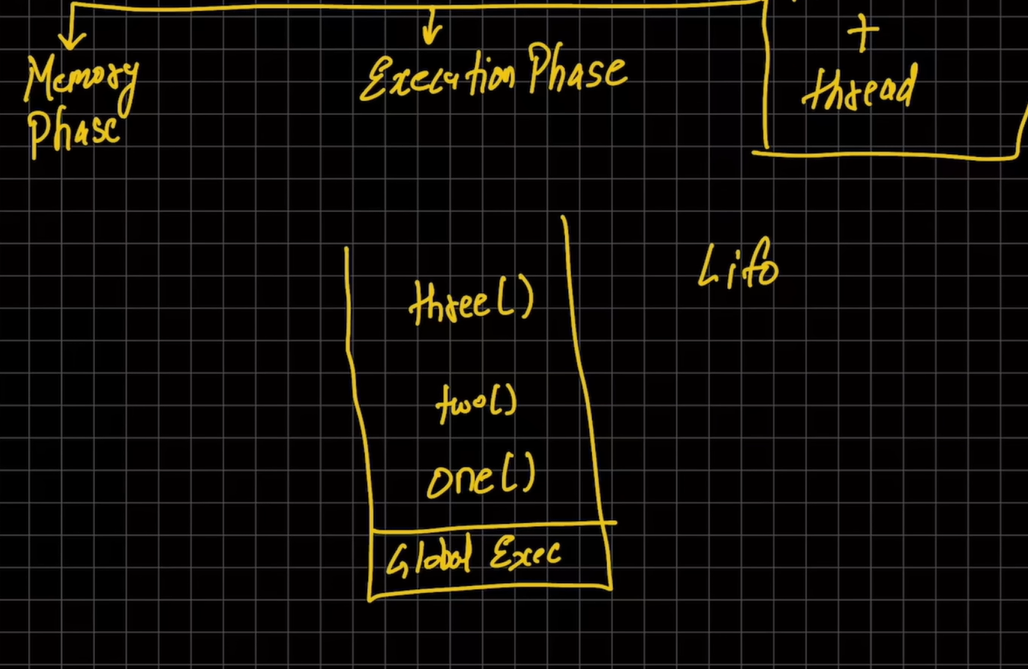 Memory
Phase
Execution Phase
+
thread
Lifo
three()
two()
one()
Global Exec